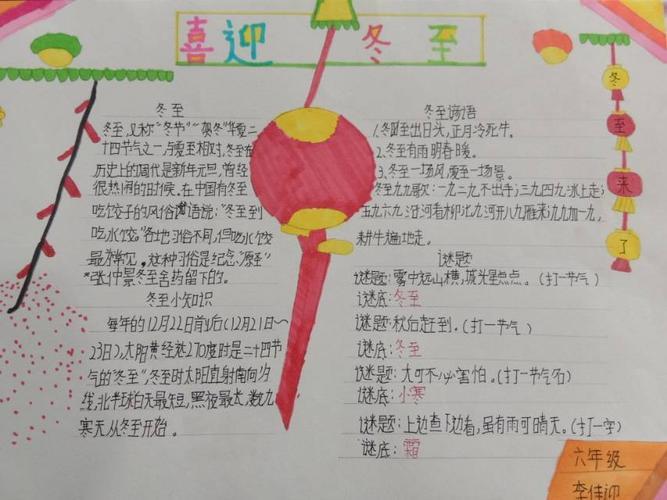 喜迎冬至
冬至
冬至,又称"冬节""贺冬"华夏二
十四节气之一,与夏至相对,冬至在
历史上的周代是新年元旦,曾经
很热闹的时候。在中国有冬至
吃饺子的风俗 谚语说:"冬至到
吃水饺。"各地习俗不同,但吃水饺
最为常见。这种习俗是纪念"医圣"
"张仲景冬至舍药留下的。
冬至小知识
每年的12月22日前后(12月21日~
23日),太阳黄经达270度时是二十四节
气的"冬至",冬至时太阳直射南回归
线,北半球白天最短,黑夜最长,数九
寒天从冬至开始。
冬至谚语
1.冬至出日头,正月冷死牛。
2.冬至有雨明春暖。
3.冬至一场风,夏至一场暴。
冬至九九歌:一九二九不出手;三九四九冰上走;
五九六九沿河看柳;七九河开八九雁来;九九加一九,
耕牛遍地走。
谜题
谜题:雾中远山横,城光星点点。(打一节气)
谜底:冬至
谜题:秋后赶到.(打一节气)
谜底:冬至
谜题:大可不必害怕。(打一节气名)
谜底:小寒
谜题:上边查下边看,虽有雨可晴天。(打一字)
谜底:霜
冬
至
来
了
六年级
李佳迎